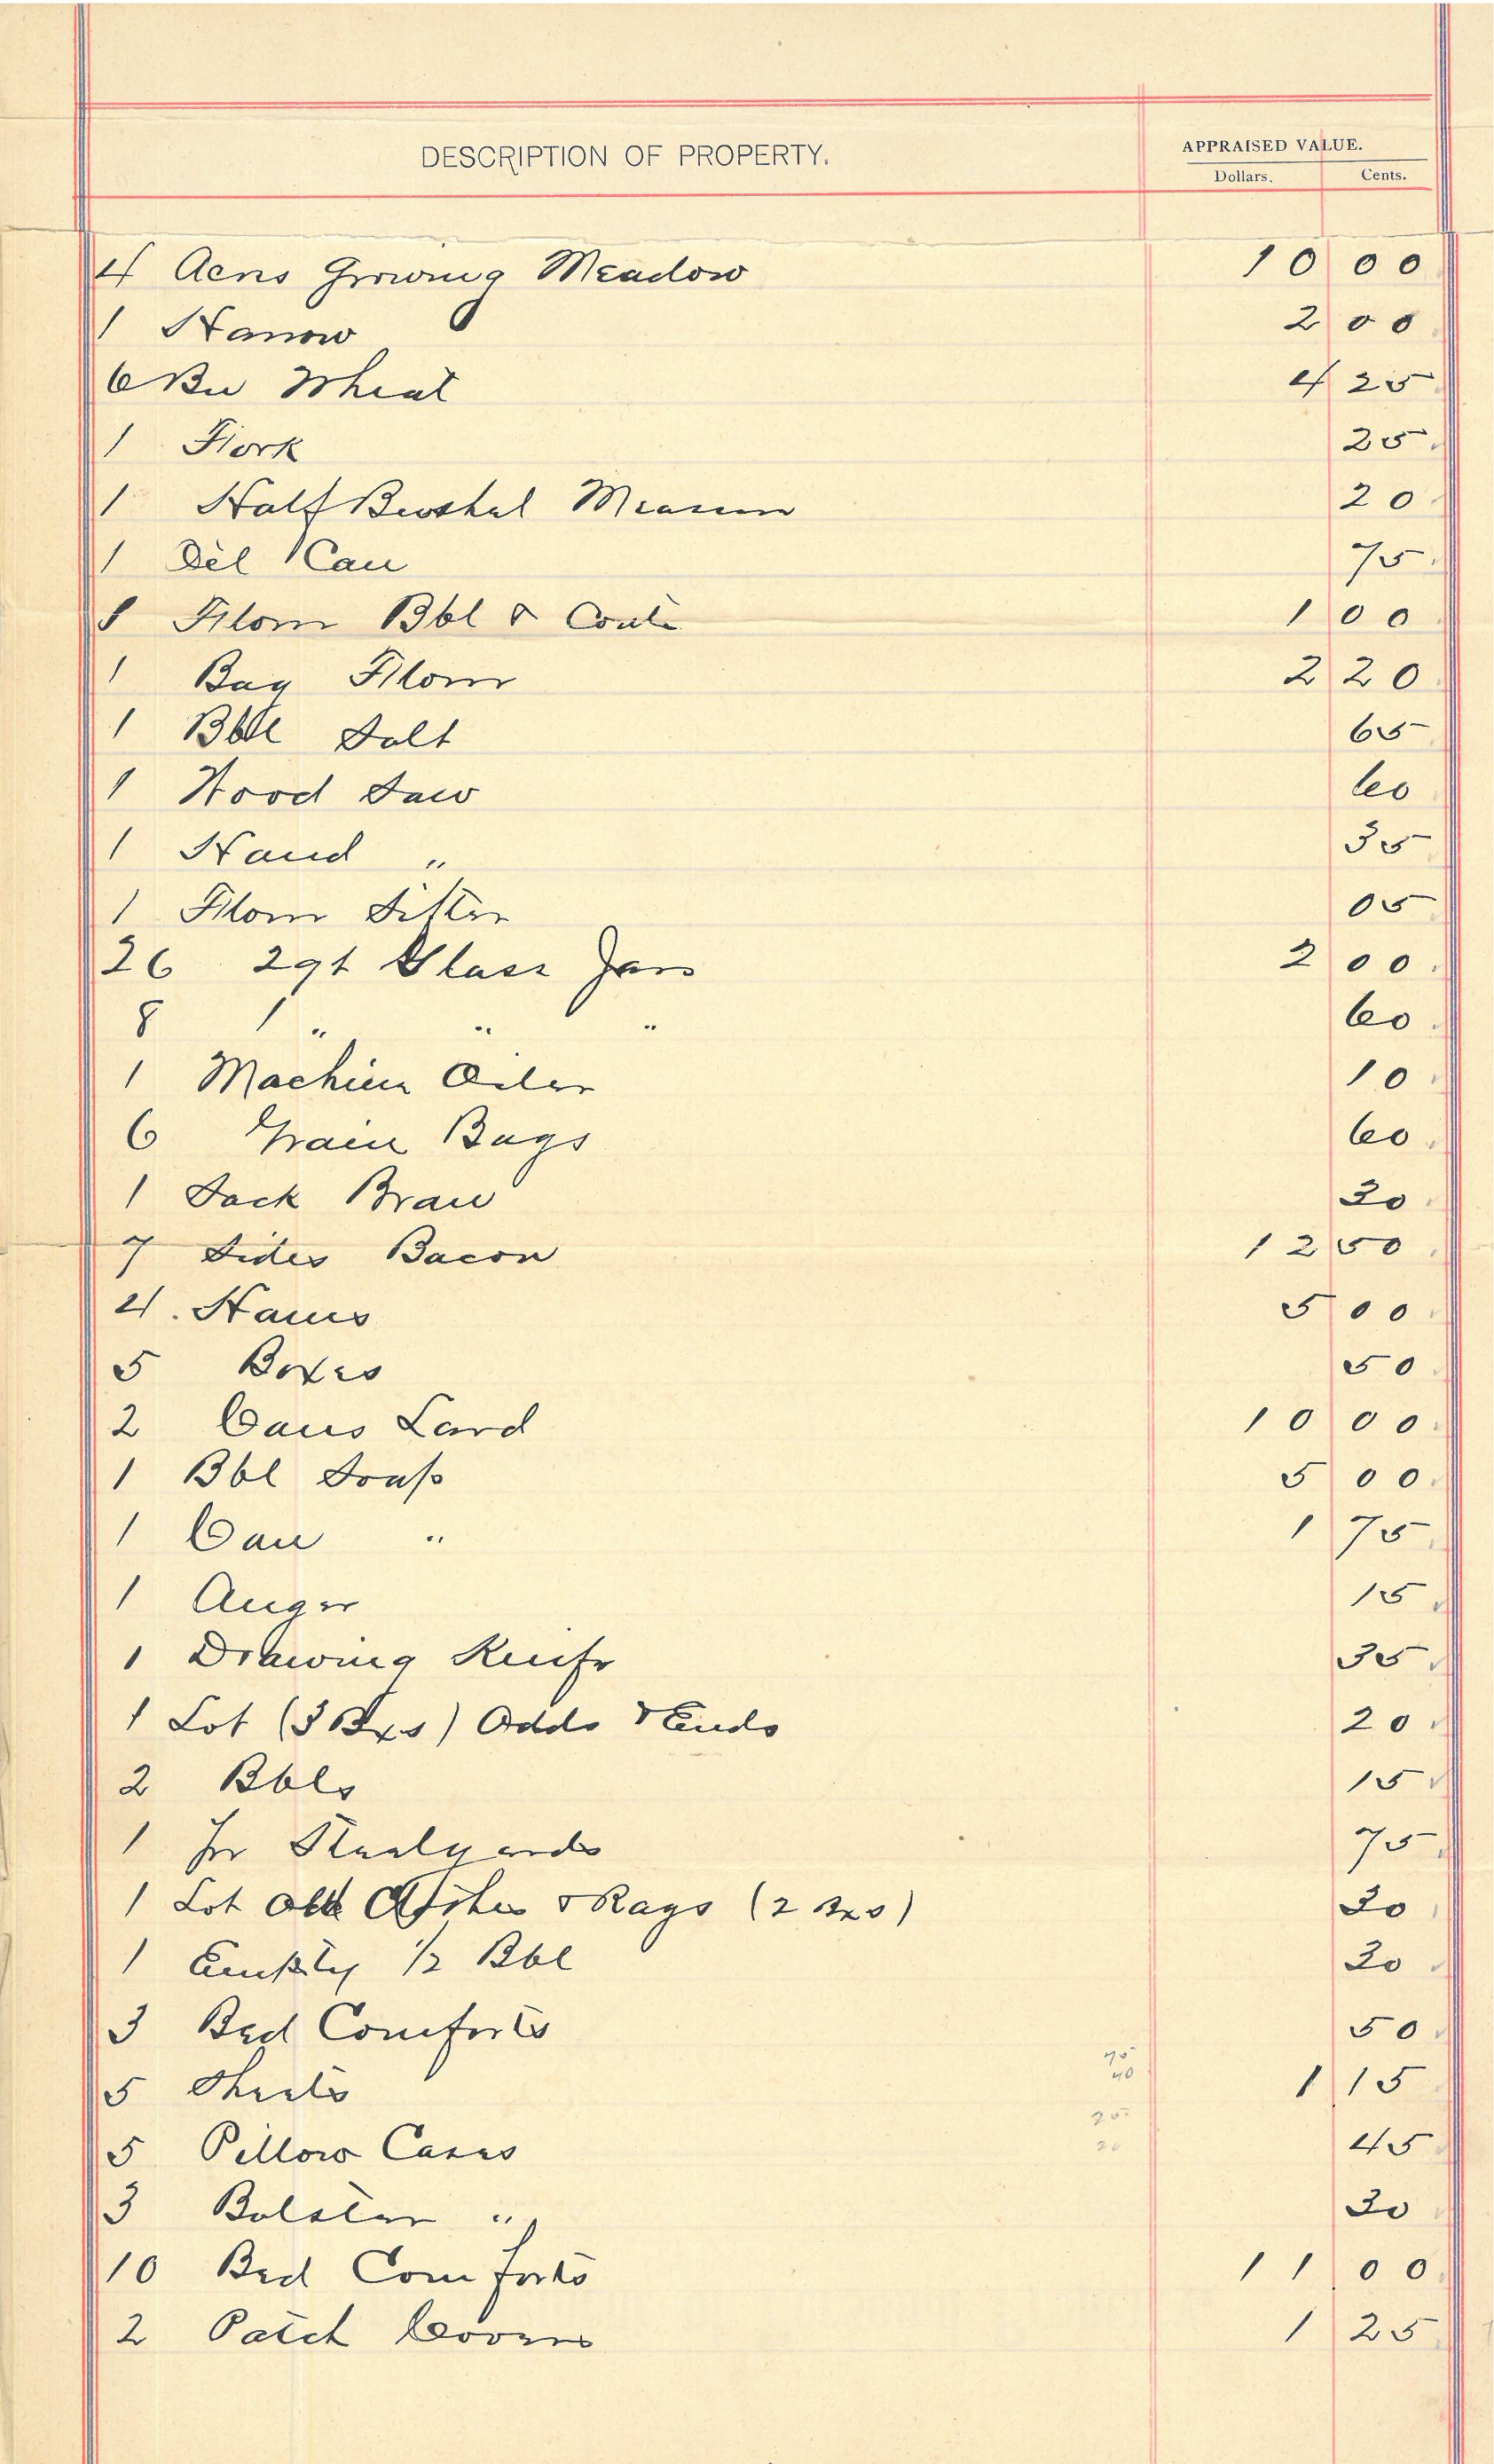 DESCRIPTION OF PROPERTY.
APPRAISED VALUE.
Dollars. Cents.
4 Acres Growing Meadow 10 00
1 Harrow 2 00
6 Bu Wheat 4 25
1 Fork 25
1 Half Bushel Measure 20
1 Oil Can 75
1 Flour Bbl & 1 00
1 Bag Flour 2 20
1 Bbl Salt 65
1 Wood Saw 60
1 Hand " 35
1 Flour Sifter 05
26 2qt Glass Jars 2 00
8 1 " " " 60
1 Machine Oiler 10
6 Grain Bags 60
1 Sack Bran 30
7 Sides Bacon 12 50
4. Hams 5 00
5 Boxes 50
2 Cans Lard 10 00
1 Bbl Soap 5 00
1 Can " 1 75
1 Auger 15
1 Drawing Knife 35
1 Lot (3 Bxs) Odds & Ends 20
2 Bbls 15
1 Pr Stealyards 75
1 Lot Old & Rags (2 Bxs) 30
1 Empty 1/2 Bbl 30
3 Bed Comforts 50
75
40
5 Sheets 1 15
25
20
5 Pillow Cases 45
3 Bolster " 30
10 Bed Comforts 11 00
2 Patch Covers 1 25